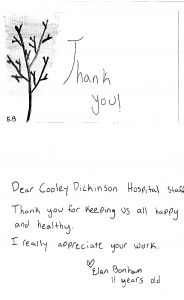 Thank
you!
EB
Dear Cooley Dickinson Hospital Staff
Thank you for keeping us all happy
and healthy.
I really appreciate your work.
♡Elan Bonham
11 years old